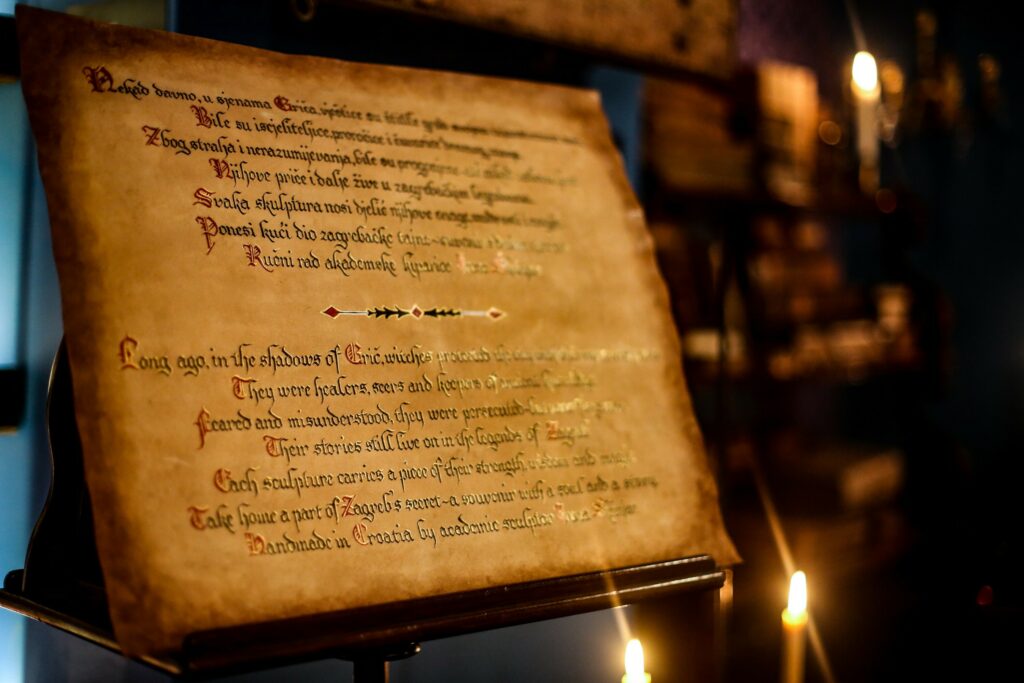 Nekad davno, u sjenama Griča, vještice su
Bile su iscjeliteljice, proročice i
Zbog straha i nerazumijevanja, bile su progonjene
Njihove priče i dalje žive u zagrebačkim legendama.
Svaka skulptura nosi djelić njihove snage,
Ponesi kući dio zagrebačke tajne~
Ručni rad akademske kiparice
Long ago, in the shadows of Grič, witches protected the
They were healers, seers and keepers of
Feared and misunderstood, they were persecuted~
Their stories still live on in the legends of Zagreb
Each sculpture carries a piece of their strength, wisdom and magic.
Take home a part of Zagreb's secret~a souvenir with a soul and a story.
Handmade in Croatia by academic sculptor